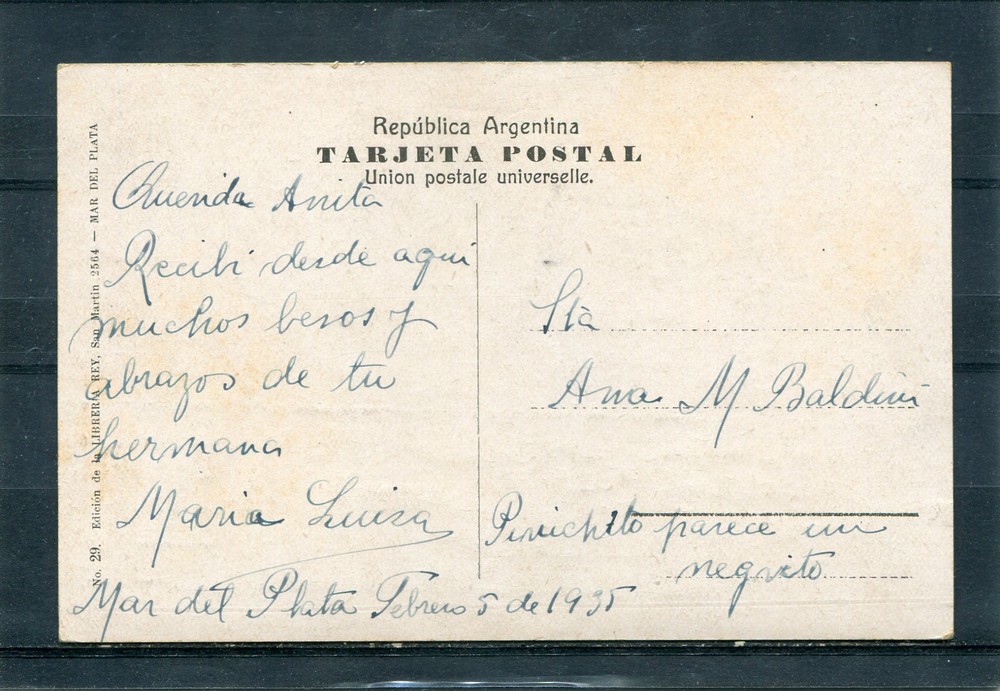 República Argentina
TARJETA POSTAL
Union postale universelle.
No. 29. Edición de la LIBRERIA REY, San Martin 2564 — MAR DEL PLATA
Querida Anita
Recibi desde aqui
muchos besos y
abrazos de tu
hermana
Maria Luisa
Mar del Plata Febrero 5 de 1935
Stà
Ana M Baldini
parece un
negrito